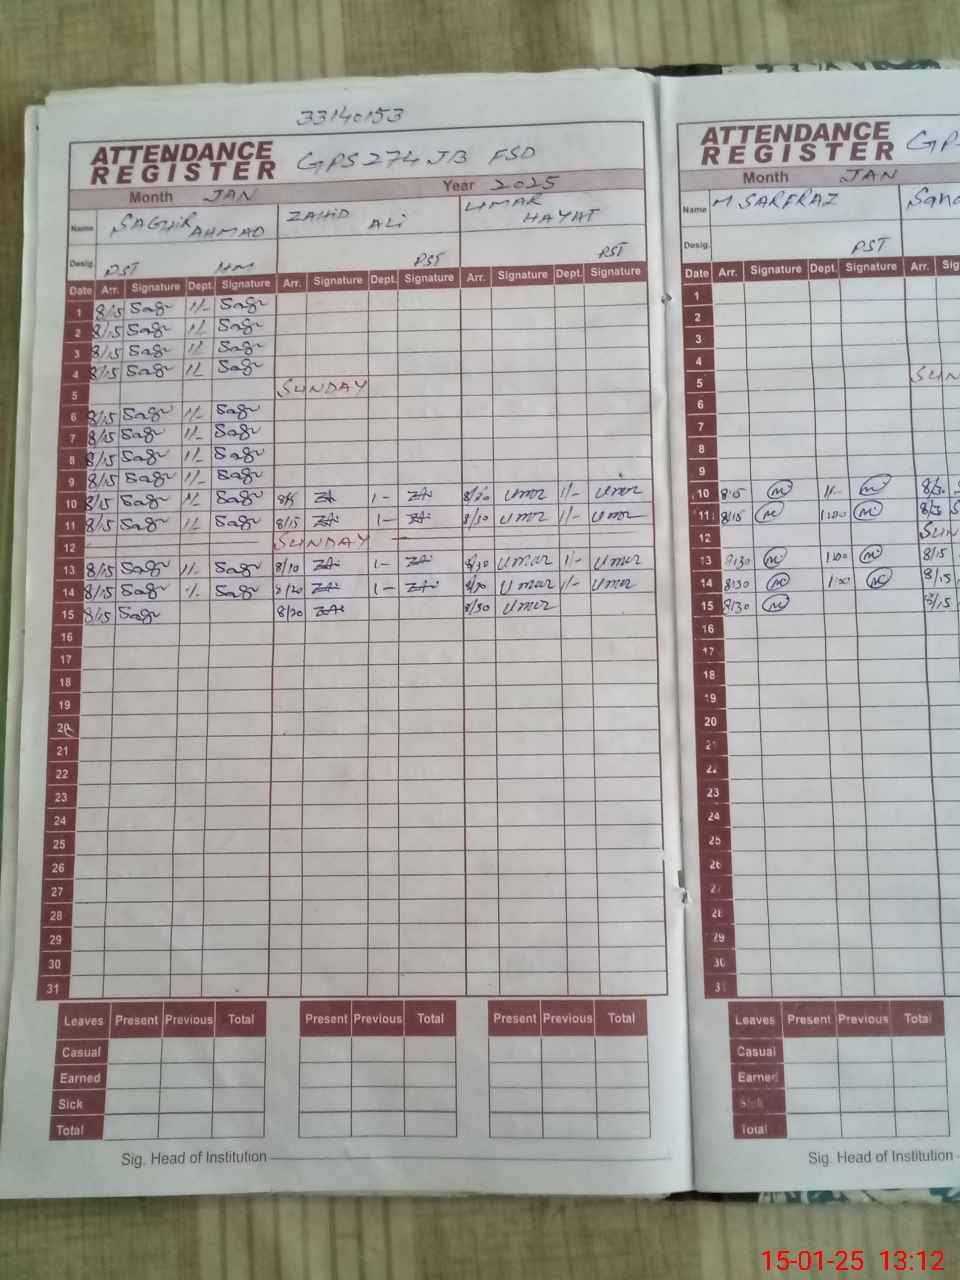 33140153
ATTENDANCE REGISTER GPS 274 JB FSD
Month JAN Year 2025
Name SAGHIR AHMAD ZAHID ALI UMAR HAYAT
Desig. PST HM PST PST
Date Arr. Signature Dept. Signature Arr. Signature Dept. Signature Arr. Signature Dept. Signature
1 8/15 Sagr 1/- Sagr
2 8/15 Sagr 1/- Sagr
3 8/15 Sagr 1/- Sagr
4 8/15 Sagr 1/- Sagr
5 SUNDAY
6 8/15 Sagr 1/- Sagr
7 8/15 Sagr 1/- Sagr
8 8/15 Sagr 1/- Sagr
9 8/15 Sagr 1/- Sagr
10 8/15 Sagr 1/- Sagr 1- 8/20 Umar 1/- Umar
11 8/15 Sagr 1/- Sagr 8/15 1- 8/30 Umar 1/- Umar
12 SUNDAY
13 8/15 Sagr 1/- Sagr 8/10 1- 8/30 Umar 1/- Umar
14 8/15 Sagr 1/- Sagr 1- Umar 1/- Umar
15 8/15 Sagr 8/20 8/30 Umar
16
17
18
19
20
21
22
23
24
25
26
27
28
29
30
31
Leaves Present Previous Total Present Previous Total Present Previous Total
Casual
Earned
Sick
Total
Sig. Head of Institution
ATTENDANCE REGISTER
Month JAN
Name M SARFRAZ
Desig. PST
Date Arr. Signature Dept. Signature Arr.
1
2
3
4
5
6
7
8
9
10 8:15 1/-
11 8/15 1:00
12
13 8:30 1:00 8/15
14 8:30 1:00 8/15
15 8/30
16
17
18
19
20
21
22
23
24
25
26
27
28
29
30
31
Leaves Present Previous Total
Casual
Earned
Sick
Total
Sig. Head of Institution
15-01-25 13:12